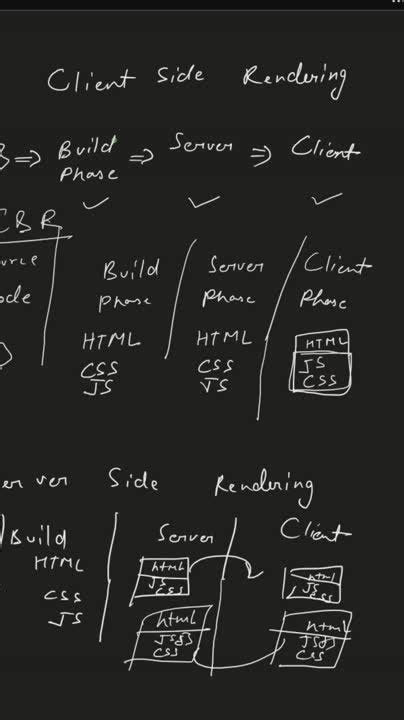 Client Side Rendering
⇒ Build Phase ⇒ Server ⇒ Client
CBR
Build Phase
Server Phase
Client Phase
HTML
CSS
JS
HTML
CSS
JS
HTML
JS
CSS
Side Rendering
Build
HTML
CSS
JS
Server
html
JS
CSS
html
CSS
Client
html
JS
CSS
html
CSS